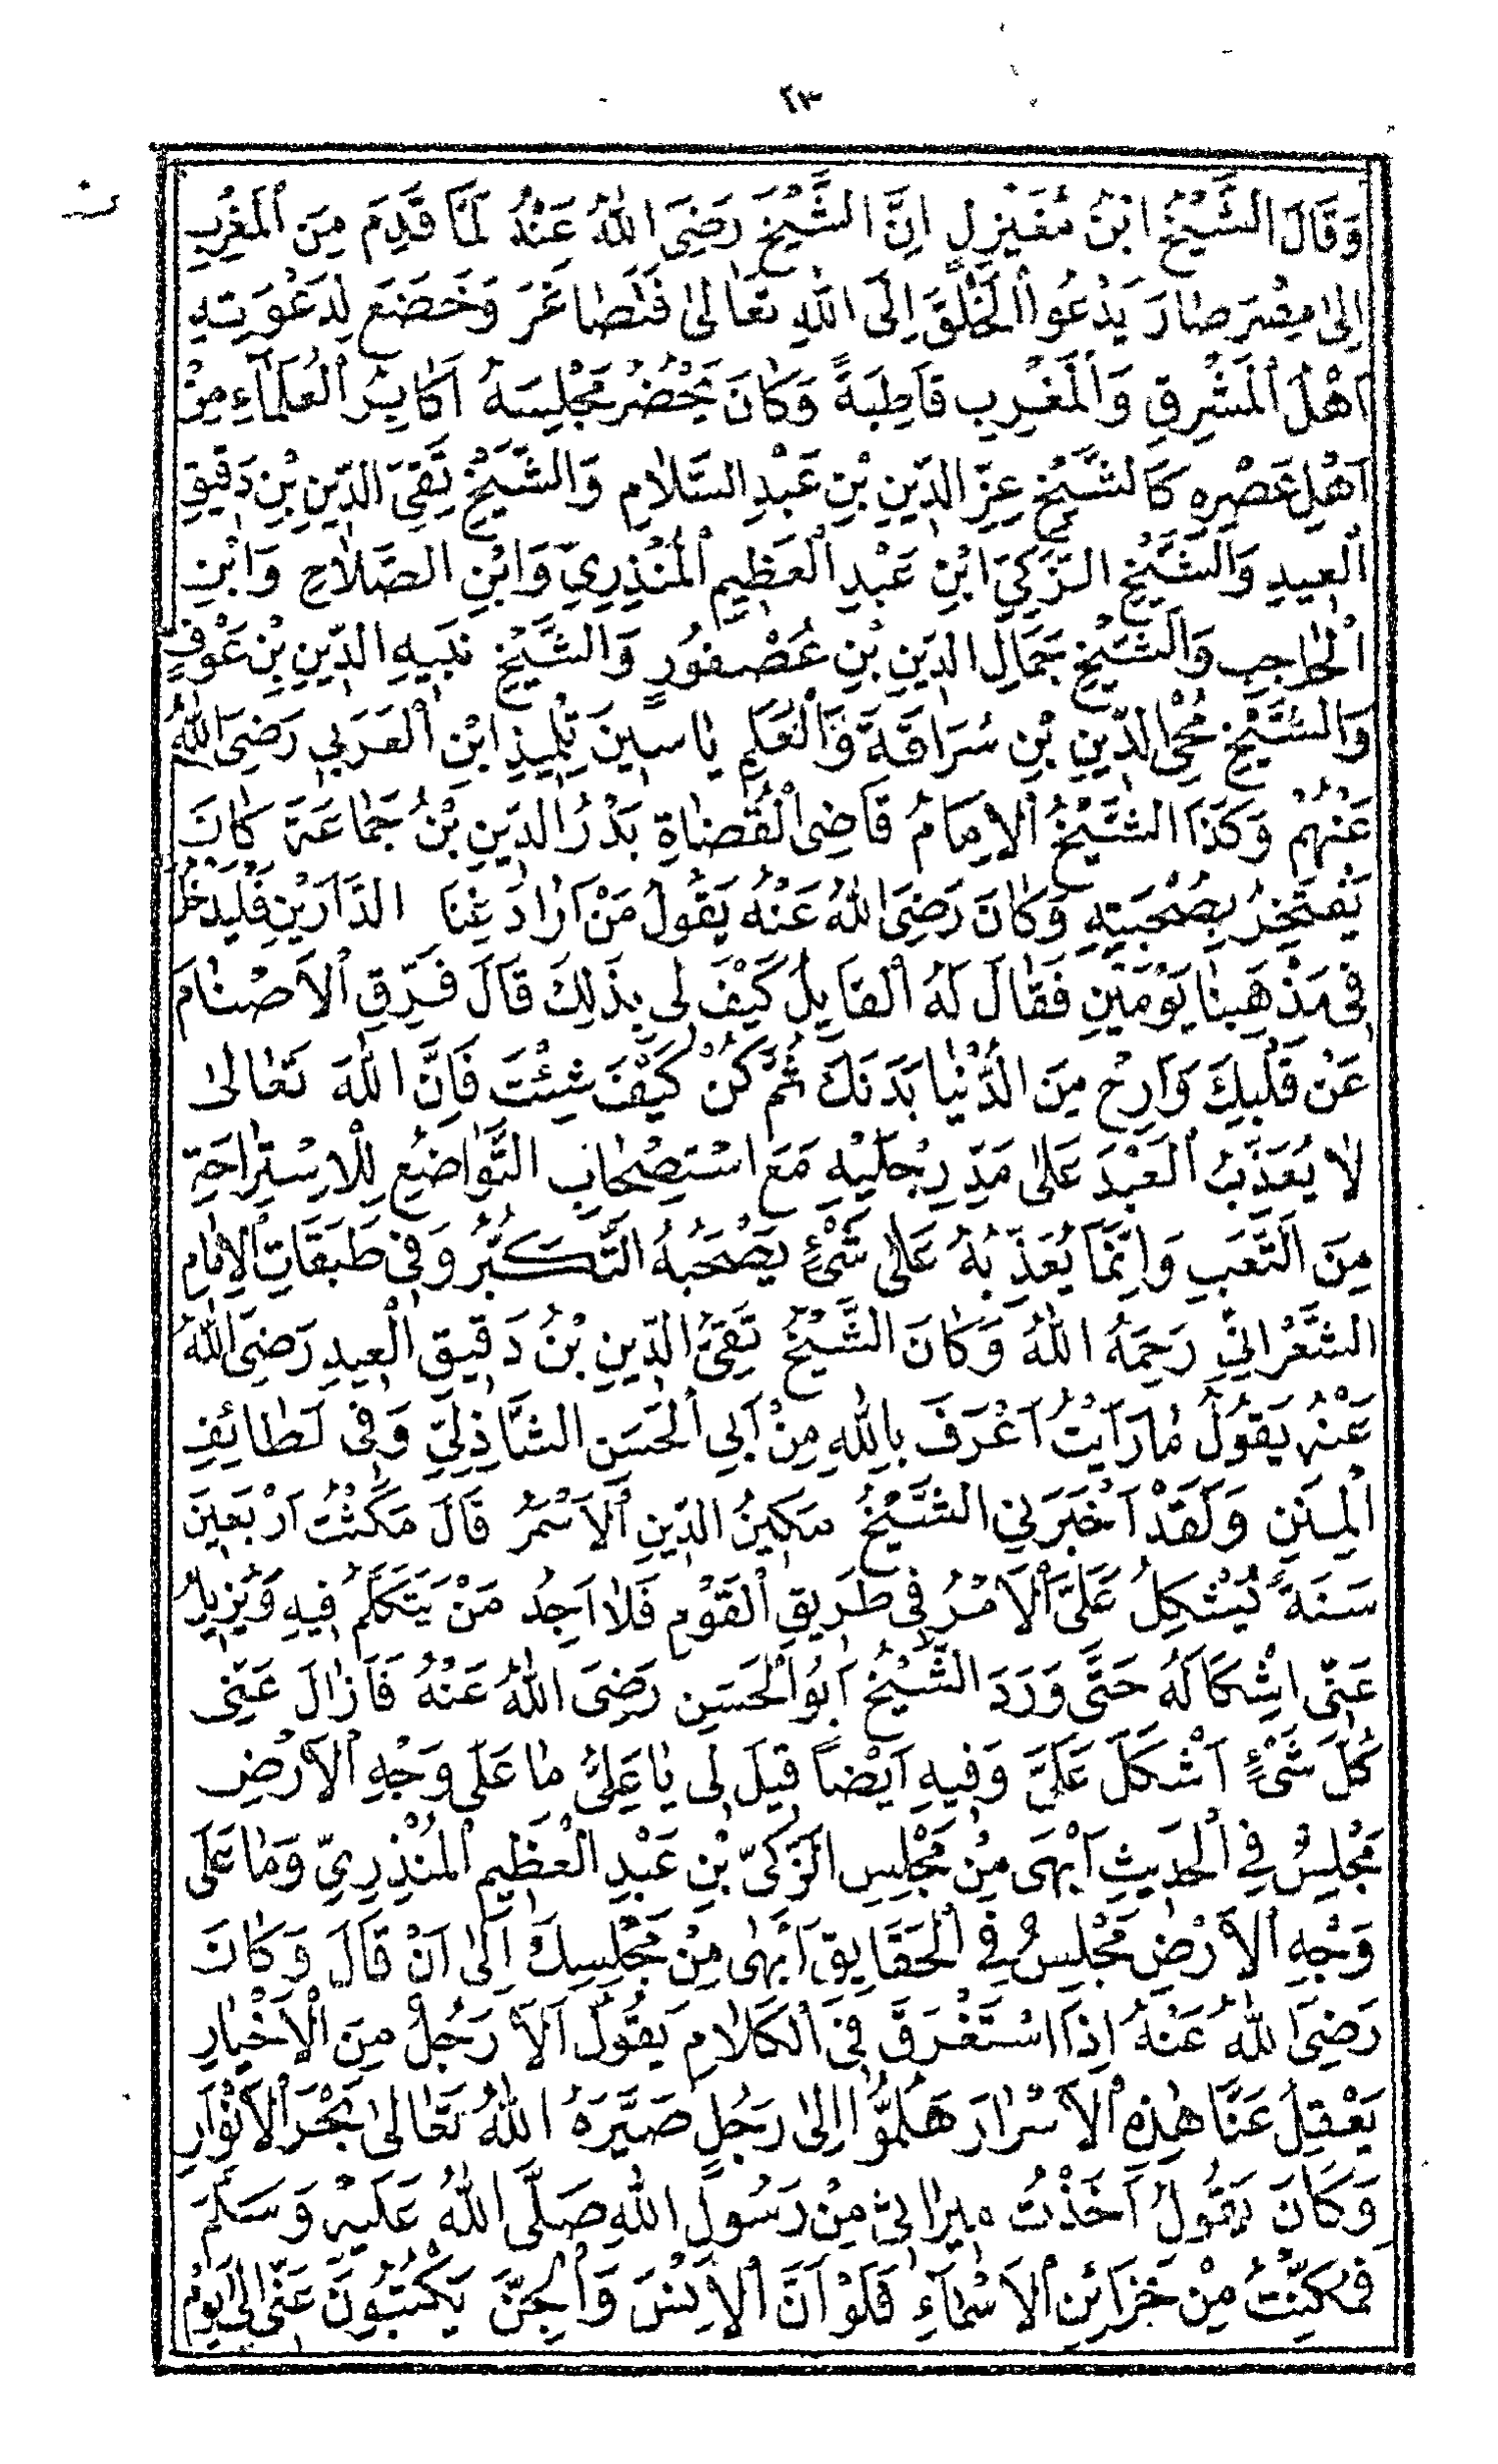 ٢٣
وَقَالَ الشَّيْخُ ابْنُ مُغَيْزِلٍ اِنَّ الشَّيْخَ رَضِىَ اللّٰهُ عَنْهُ لَمَّا قَدِمَ مِنَ الْمَغْرِبِ
اِلىٰ مِصْرَ صٰارَ يَدْعُوا الْخَلْقَ اِلَى اللّٰهِ تَعٰالىٰ فَتَصٰاغَرَ وَخَضَعَ لِدَعْوَتِهِ
اَهْلُ الْمَشْرِقِ وَالْمَغْرِبِ قَاطِبَةً وَكٰانَ يَحْضُرُ مَجْلِسَهُ اَكَابِرُ الْعُلَمَآءِ مِنْ
اَهْلِ عَصْرِهِ كَالشَّيْخِ عِزِّ الدِّينِ بْنِ عَبْدِ السَّلَامِ وَالشَّيْخِ تَقِىِّ الدِّينِ بْنِ دَقِيقِ
الْعِيدِ وَالشَّيْخِ الزَّكِيِّ ابْنِ عَبْدِ الْعَظِيمِ الْمُنْذِرِيِّ وَابْنِ الصَّلَاحِ وَابْنِ
الْحٰاجِبِ وَالشَّيْخِ جَمَالِ الدِّينِ بْنِ عُصْفُورٍ وَالشَّيْخِ نَبِيهِ الدِّينِ بْنِ عَوْفٍ
وَالشَّيْخِ مُحْىِ الدِّينِ بْنِ سُرَاقَةَ وَالْعَلَمِ يٰاسِينَ تِلْمِيذِ ابْنِ الْعَرَبِي رَضِىَ اللّٰهُ
عَنْهُمْ وَكَذَا الشَّيْخُ الْاِمَامُ قَاضِى الْقُضٰاةِ بَدْرُ الدِّينِ بْنُ جَمٰاعَةَ كٰانَ
يَفْتَخِرُ بِصُحْبَتِهِ وَكٰانَ رَضِىَ اللّٰهُ عَنْهُ يَقُولُ مَنْ اَرٰادَ غِنَا الدَّارَيْنِ فَلْيَدْخُلْ
فِى مَذْهَبِنٰا يَوْمَيْنِ فَقٰالَ لَهُ الْقَايِلُ كَيْفَ لِى بِذَلِكَ قَالَ فَرِّقِ الْاَصْنٰامَ
عَنْ قَلْبِكَ وَاَرِحْ مِنَ الدُّنْيٰا بَدَنَكَ ثُمَّ كُنْ كَيْفَ شِئْتَ فَاِنَّ اللّٰهَ تَعٰالىٰ
لٰا يُعَذِّبُ الْعَبْدَ عَلىٰ مَدِّ رِجْلَيْهِ مَعَ اسْتِصْحٰابِ التَّوٰاضُعِ لِلْاِسْتِرٰاحَةِ
مِنَ التَّعَبِ وَاِنَّمَا يُعَذِّبُهُ عَلىٰ شَىْءٍ يَصْحَبُهُ التَّكَبُّرُ وَفِى طَبَقَاتِ الْاِمٰامِ
الشَّعْرَانِيِّ رَحِمَهُ اللّٰهُ وَكٰانَ الشَّيْخُ تَقِىُّ الدِّينِ بْنُ دَقِيقِ الْعِيدِ رَضِىَ اللّٰهُ
عَنْهُ يَقُولُ مٰا رَاَيْتُ اَعْرَفَ بِاللّٰهِ مِنْ اَبِى الْحَسَنِ الشَّاذِلِيِّ وَفِى لَطٰائِفِ
الْمِنَنِ وَلَقَدْ اَخْبَرَنِي الشَّيْخُ مَكِينُ الدِّينِ الْاَسْمَرُ قَالَ مَكَثْتُ اَرْبَعِينَ
سَنَةً يُشْكِلُ عَلَىَّ الْاَمْرُ فِى طَرِيقِ الْقَوْمِ فَلٰا اَجِدُ مَنْ يَتَكَلَّمُ فِيهِ وَيُزِيلُ
عَنِّى اِشْكَالَهُ حَتَّى وَرَدَ الشَّيْخُ اَبُو الْحَسَنِ رَضِىَ اللّٰهُ عَنْهُ فَاَزٰالَ عَنِّى
كُلَّ شَىْءٍ اَشْكَلَ عَلَىَّ وَفِيهِ اَيْضًا قِيلَ لِى يٰا عَلِىُّ مٰا عَلَى وَجْهِ الْاَرْضِ
مَجْلِسٌ فِى الْحَدِيثِ اَبْهَى مِنْ مَجْلِسِ الزَّكِىِّ بْنِ عَبْدِ الْعَظِيمِ الْمُنْذِرِيِّ وَمٰا عَلَى
وَجْهِ الْاَرْضِ مَجْلِسٌ فِى الْحَقَايِقِ اَبْهٰى مِنْ مَجْلِسِكَ اِلىٰ اَنْ قَالَ وَكٰانَ
رَضِىَ اللّٰهُ عَنْهُ اِذَا اسْتَغْرَقَ فِى الْكَلٰامِ يَقُولُ اَلَا رَجُلٌ مِنَ الْاَخْيٰارِ
يَعْقِلُ عَنَّا هٰذِهِ الْاَسْرٰارَ هَلُمُّوا اِلىٰ رَجُلٍ صَيَّرَهُ اللّٰهُ تَعٰالىٰ بَحْرَ الْاَنْوَارِ
وَكَانَ يَقُولُ اَخَذْتُ مِيرٰاثِى مِنْ رَسُولِ اللّٰهِ صَلَّى اللّٰهُ عَلَيْهِ وَسَلَّمَ
فَمُكِّنْتُ مِنْ خَزَائِنِ الْاَسْمٰآءِ فَلَوْ اَنَّ الْاِنْسَ وَالْجِنَّ يَكْتُبُونَ عَنِّى اِلىٰ يَوْمِ